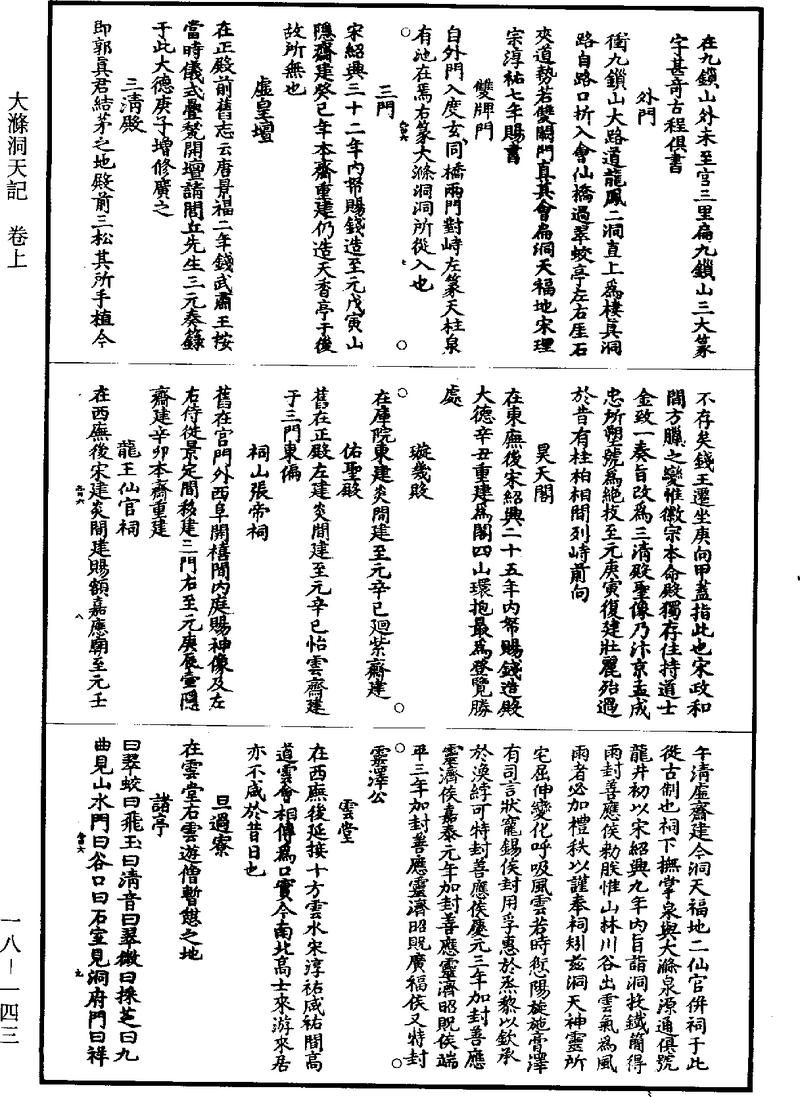 大滌洞天記　卷上
在九鎖山外未至宮三里扁九鎖山三大篆
字甚奇古程俱書
外門
衝九鎖山大路道龍鳳二洞直上爲棲真洞
路自路口折入會仙橋過翠蛟亭左右厓石
夾道勢若雙闕門直其會扁洞天福地宋理
宗淳祐七年賜書
雙牌門
自外門入度玄同橋兩門對峙左篆天柱泉
有池在焉右篆大滌洞洞所從入也
三門
宋紹興三十二年內帑賜錢造至元戊寅山
隱齋建癸巳年本齋重建仍造天香亭于後
故所無也
虛皇壇
在正殿前舊志云唐景福二年錢武肅王按
當時儀式疊甃開壇請閭丘先生三元奏籙
于此大德庚子增修廣之
三清殿
即郭真君結茅之地殿前三松其所手植今
不存矣錢王遷坐庚向甲蓋指此也宋政和
間方臘之變惟徽宗本命殿獨存住持道士
金致一奏旨改爲三清殿聖像乃汴京孟成
忠所塑號爲絕技至元庚寅復建壯麗殆過
於昔有桂柏相間列峙前向
昊天閣
在東廡後宋紹興二十五年內帑賜錢造殿
大德辛丑重建爲閣四山環抱最爲登覽勝
處
璇璣殿
在庫院東建炎間建至元辛巳迴紫齋建
佑聖殿
舊在正殿左建炎間建至元辛巳怡雲齋建
于三門東偏
祠山張帝祠
舊在宮門外西阜開禧間內庭賜神像及左
右侍從景定間移建三門右至元庚辰靈隱
齋建辛卯本齋重建
龍王仙官祠
在西廡後宋建炎間建賜額嘉應廟至元壬
午清虛齋建今洞天福地二仙官併祠于此
從古制也祠下撫掌泉與大滌泉源通俱號
龍井初以宋紹興九年內旨詣洞投鐵簡得
雨封善應侯勑朕惟山林川谷出雲氣爲風
雨者必加禮秩以謹奉祠矧茲洞天神靈所
宅屈伸變化呼吸風雲若時愆陽旋施膏澤
有司言狀寵錫侯封用孚惠於烝黎以欽承
於渙綍可特封善應侯慶元三年加封善應
靈濟侯嘉泰元年加封善應靈濟昭貺侯端
平三年加封善應靈濟昭貺廣福侯又特封
靈澤公
雲堂
在西廡後延接十方雲水宋淳祐咸祐間高
道雲會相傳爲口實今南北高士來游來居
亦不减於昔日也
旦過寮
在雲堂右雲遊僧暫憇之地
諸亭
曰翠蛟曰飛玉曰清音曰翠微曰採芝曰九
曲見山水門曰谷口曰石室見洞府門曰祥
一八－一四三